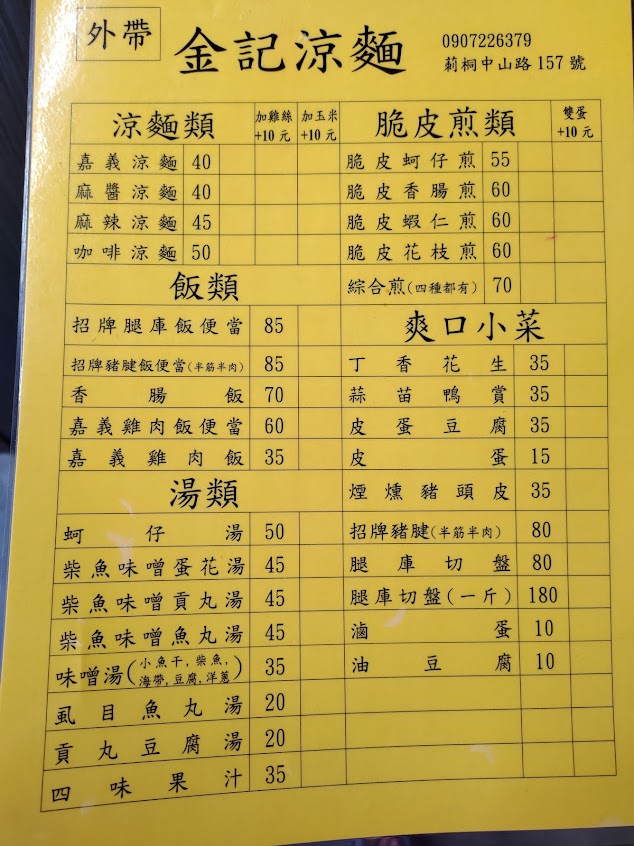 外帶
金記涼麵
0907226379
莿桐中山路157號
涼麵類 加雞絲+10元 加玉米+10元
嘉義涼麵 40
麻醬涼麵 40
麻辣涼麵 45
咖啡涼麵 50
飯類
招牌腿庫飯便當 85
招牌豬腱飯便當(半筋半肉) 85
香腸飯 70
嘉義雞肉飯便當 60
嘉義雞肉飯 35
湯類
蚵仔湯 50
柴魚味噌蛋花湯 45
柴魚味噌貢丸湯 45
柴魚味噌魚丸湯 45
味噌湯(小魚干,柴魚,海帶,豆腐,洋蔥) 35
虱目魚丸湯 20
貢丸豆腐湯 20
四味果汁 35
脆皮煎類 雙蛋+10元
脆皮蚵仔煎 55
脆皮香腸煎 60
脆皮蝦仁煎 60
脆皮花枝煎 60
綜合煎(四種都有) 70
爽口小菜
丁香花生 35
蒜苗鴨賞 35
皮蛋豆腐 35
皮蛋 15
煙燻豬頭皮 35
招牌豬腱(半筋半肉) 80
腿庫切盤 80
腿庫切盤(一斤) 180
滷蛋 10
油豆腐 10